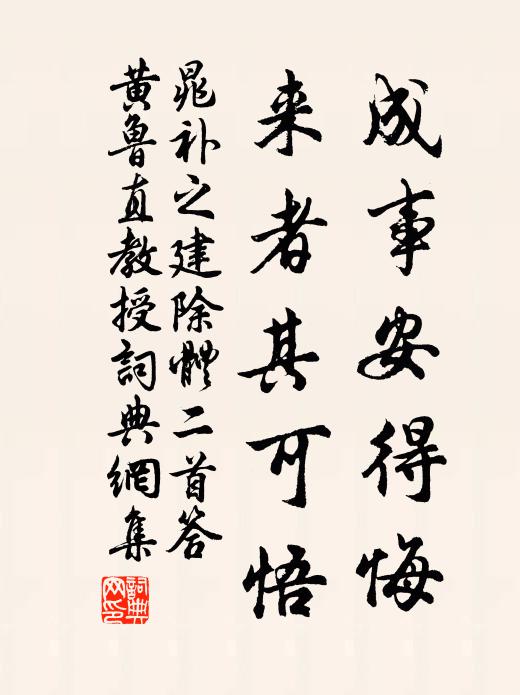 成事安得悔
来者其可悟
晁补之建除體二首答
黄魯直教授詞典網集
詞典網印